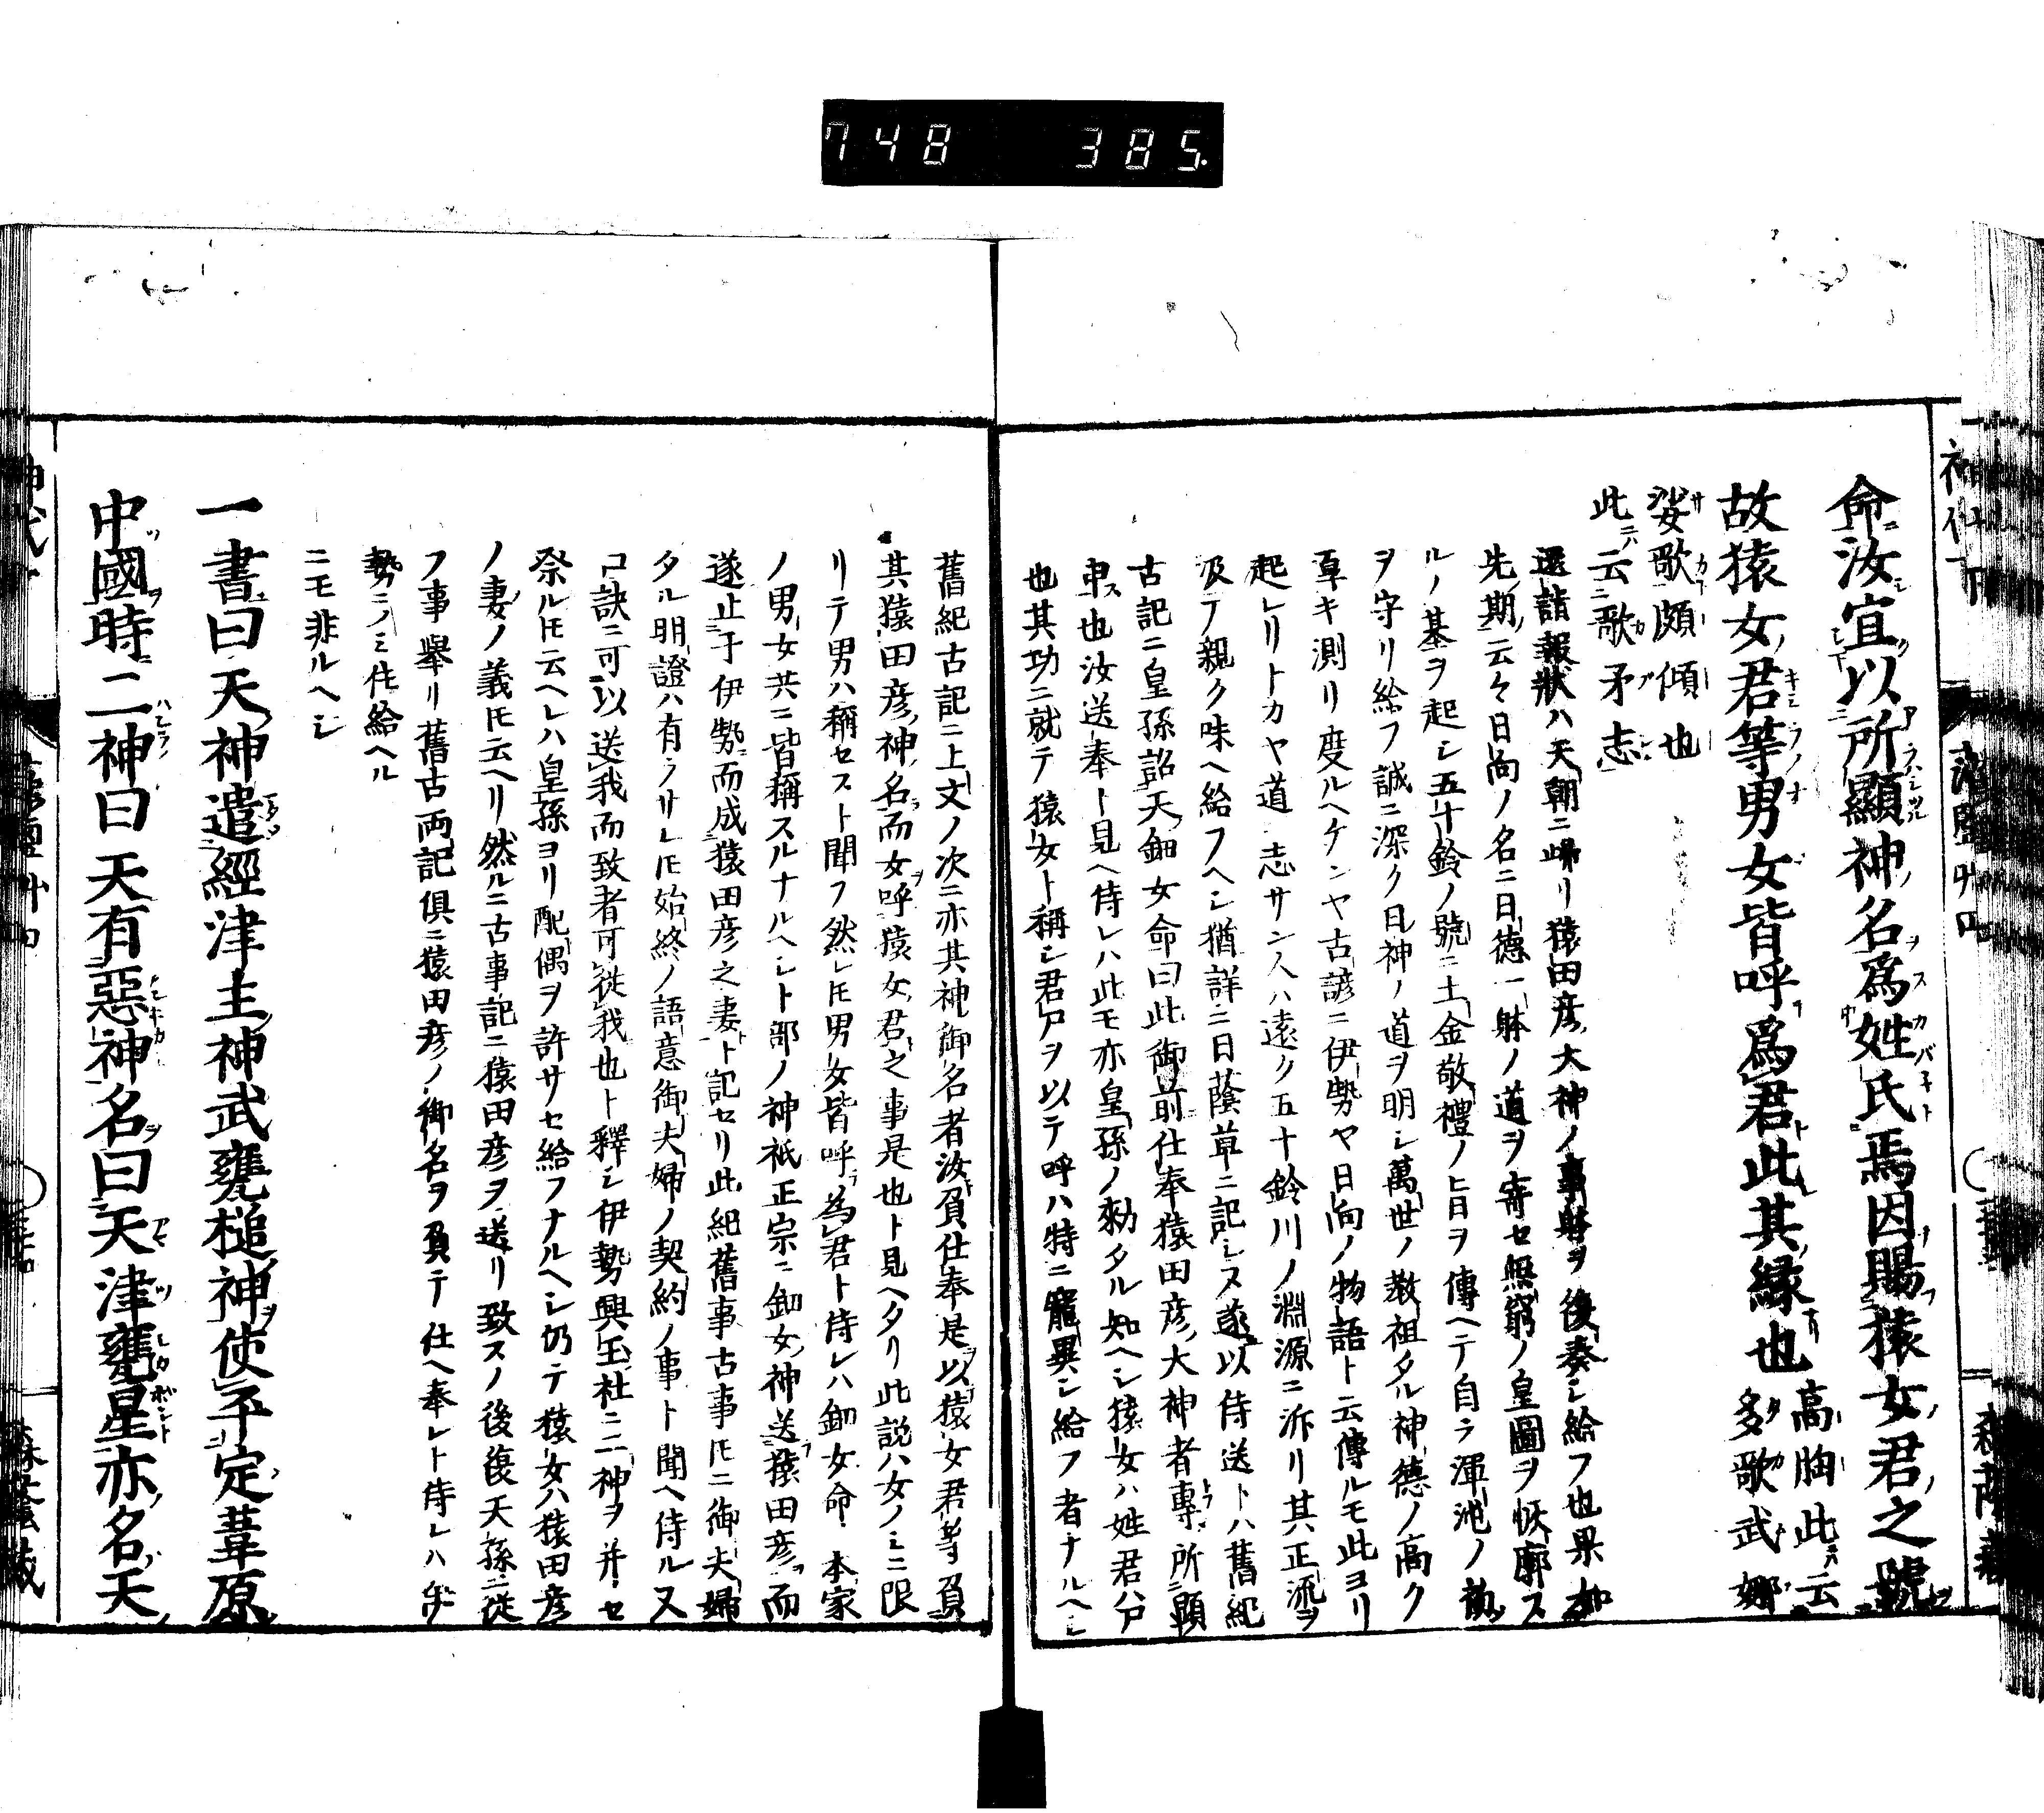 748 385.
命汝宜以所顯神名爲姓氏焉因賜猿女君之號
故猿女君等男女皆呼爲君此其縁也高胸此云多歌武娜
娑歌頗傾也
此云歌矛志
還詣報状ハ天朝ニ皈リ猿田彦大神ノ事ヲ復奏シ給フ也果如
先期云々日向ノ名ニ日徳一躰ノ道ヲ寄セ無窮ノ皇圖ヲ恢廓ス
ルノ基ヲ起シ五十鈴ノ號ニ土金敬禮ノ旨ヲ傳ヘテ自ラ渾沌ノ
ヲ守リ給フ誠ニ深ク日神ノ道ヲ明シ萬世ノ教祖タル神徳ノ高ク
厚キ測リ度ルヘケンヤ古諺ニ伊勢ヤ日向ノ物語ト云傳ルモ此ヨリ
起レリトカヤ道ニ志サン人ハ遠ク五十鈴川ノ淵源ニ泝リ其正流ヲ
汲テ親ク味ヘ給フヘシ猶詳ニ日蔭草ニ記レス遂以侍送トハ舊紀
古記ニ皇孫詔天鈿女命曰此御前仕奉猿田彦大神者專所顯
申也汝送奉ト見ヘ侍レハ此モ亦皇孫ノ勅タル知ヘシ猿女ハ姓君ハ尸
也其功ニ就テ猿女ト稱シ君尸ヲ以テ呼ハ特ニ寵異シ給フ者ナルヘシ
舊紀古記ニ上文ノ次ニ亦其神御名者汝負仕奉是以猿女君等負
其猿田彦神名而女呼猿女君之事是也ト見ヘタリ此説ハ女ノミニ限
リテ男ハ稱セスト聞フ然レ𪜈男女皆呼為君ト侍レハ鈿女命本家
ノ男女共ニ皆稱スルナルヘシト部ノ神祇正宗ニ鈿女神送猿田彦而
遂止于伊勢而成猿田彦之妻ト記セリ此紀舊事古事𪜈ニ御夫婦
タル明證ハ有ラサレ𪜈始終ノ語意御夫婦ノ契約ノ事ト聞ヘ侍ル又
口訣ニ可以送我而致者可從我也ト釋シ伊勢興玉社ニ二神ヲ并セ
祭ル𪜈云ヘレハ皇孫ヨリ配偶ヲ許サセ給フナルヘシ仍テ猿女ハ猿田彦
ノ妻ノ義𪜈云ヘリ然ルニ古事記ニ猿田彦ヲ送リ致スノ後復天孫ニ従
フ事擧リ舊古両記倶ニ猿田彦ノ御名ヲ負テ仕ヘ奉レト侍レハ必
勢ニノミ住給ヘル
ニモ非ルヘシ
一書曰天神遣經津主神武甕槌神使平定葦原
中國時二神曰天有惡神名曰天津甕星亦名天